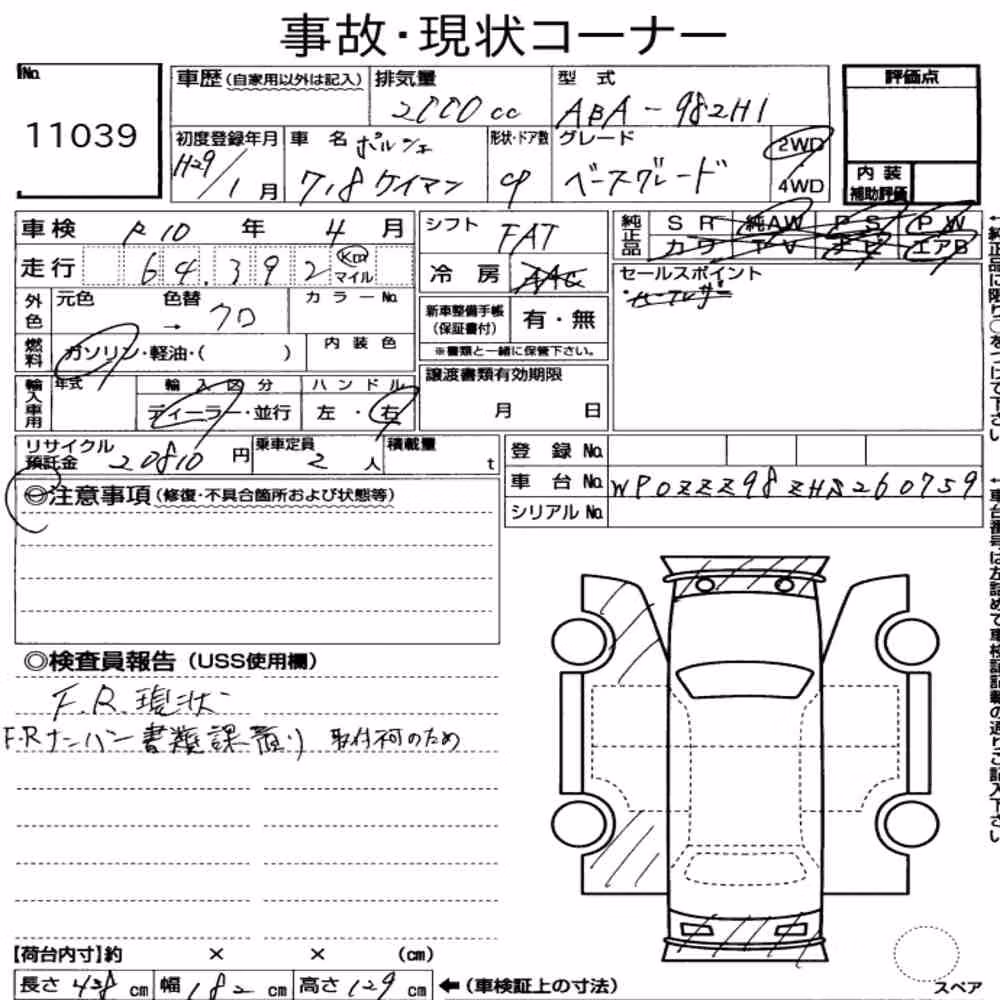 事故・現状コーナー
No.
11039
車歴(自家用以外は記入) 排気量 2000cc 型式 ABA-982H1
評価点
初度登録年月 H29/1月 車名 ポルシェ 718ケイマン 形状・ドア数 グレード ベースグレード 2WD 4WD
内装補助評価
車検 R10年 4月 シフト FAT
純正品 SR 純AW PS PW
カワ TV ナビ エアB
走行 64.392 Km マイル 冷房 AAC
セールスポイント
外色 元色 色替 → クロ カラーNo.
新車整備手帳(保証書付) 有・無
※書類と一緒に保管下さい。
燃料 ガソリン・軽油・( ) 内装色
輸入車用 年式 輸入区分 ディーラー・並行 ハンドル 左・右
譲渡書類有効期限
月 日
リサイクル預託金 20810円 乗車定員 2人 積載量 t
登録No.
車台No. WP0ZZZ98ZHS260759
シリアルNo.
◎注意事項(修復・不具合箇所および状態等)
◎検査員報告(USS使用欄)
F.R.現状
F.Rナンバー書類課有り 取付 のため
【荷台内寸】約 × × (cm)
長さ 438cm 幅 182cm 高さ 129cm ←(車検証上の寸法)
スペア
↑純正品に限り○をつけて下さい
↑車台番号は左詰めで車検証記載の通りご記入下さい